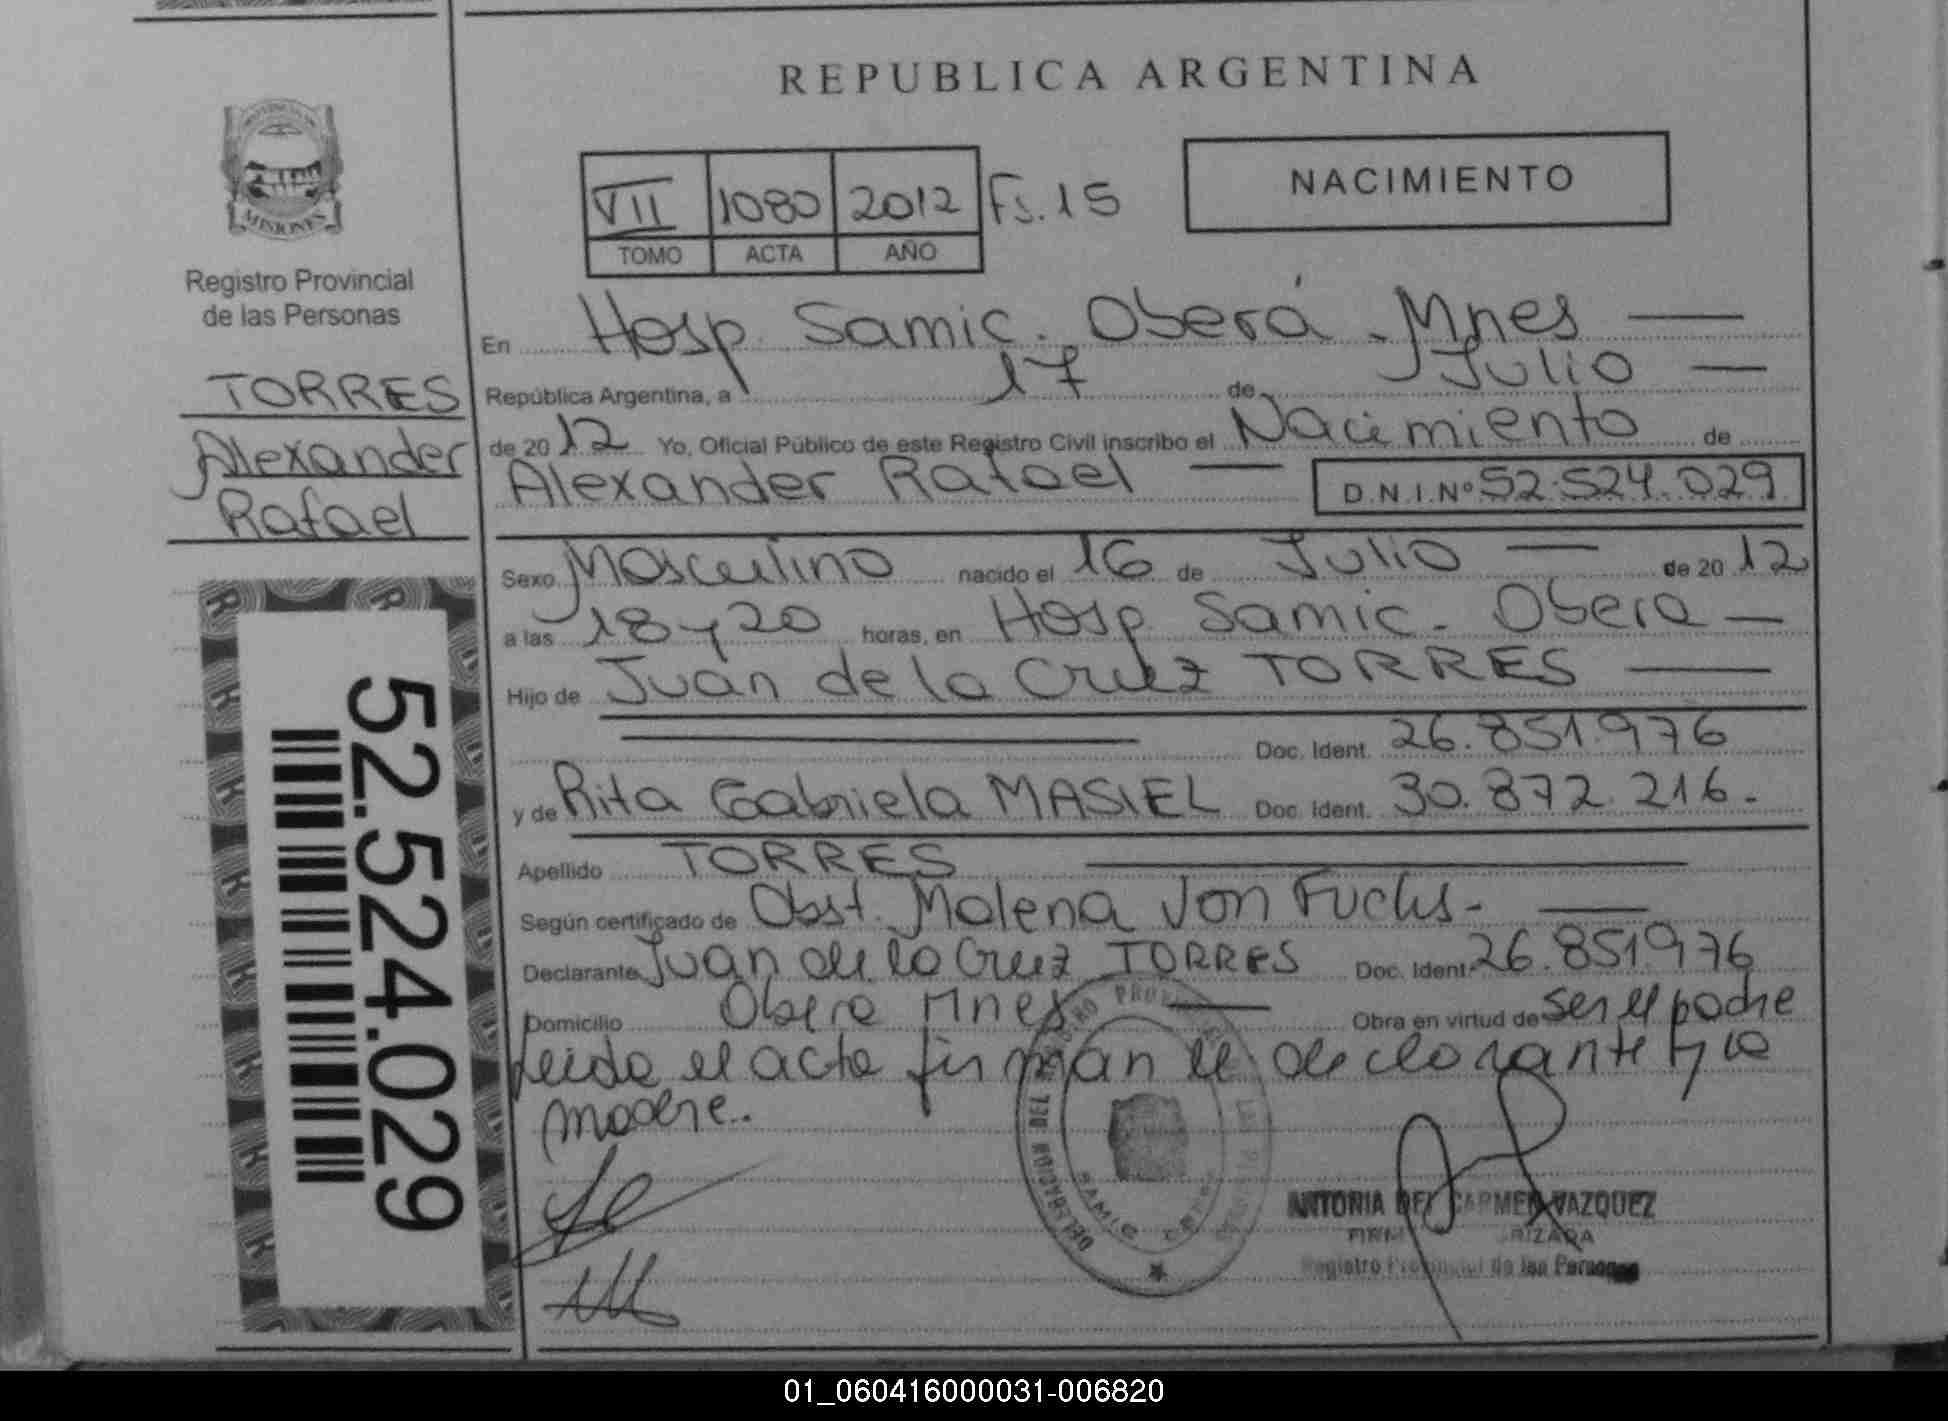 REPUBLICA ARGENTINA
NACIMIENTO
VII 1080 2012 Fs. 15
TOMO ACTA AÑO
MISIONES
Registro Provincial
de las Personas
TORRES
Alexander
Rafael
52.524.029
En Hosp. Samic. Oberá. Mnes
República Argentina, a 17 de Julio
de 2012 Yo, Oficial Público de este Registro Civil inscribo el Nacimiento de
Alexander Rafael D.N.I.Nº 52.524.029
Sexo Masculino nacido el 16 de Julio de 2012
a las 18 y 20 horas, en Hosp. Samic. Obera
Hijo de Juan de la Cruz TORRES
Doc. Ident. 26.851.976
y de Rita Gabriela MASIEL Doc. Ident. 30.872.216.
Apellido TORRES
Según certificado de Obst. Malena Von Fuchs.
Declarante Juan de la Cruz TORRES Doc. Ident. 26.851.976
Domicilio Obera Mnes Obra en virtud de ser el padre
Leida el acta firman el declarante y la
madre.
ANTONIA DEL CARMEN VAZQUEZ
Registro Provincial de las Personas
01_060416000031-006820